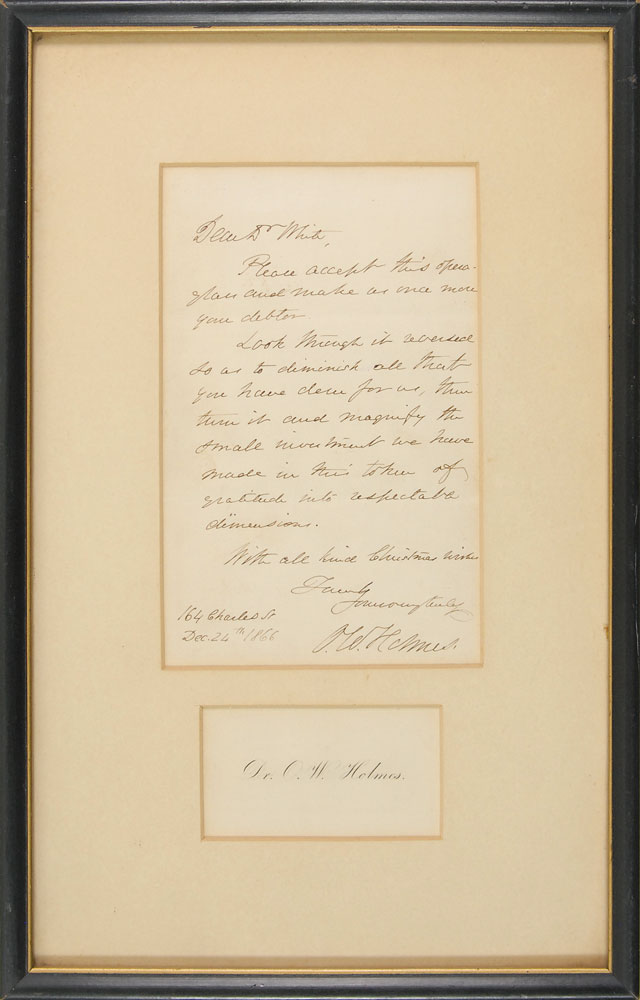 Dear Dr White,
Please accept this opera-
glass and make us once more
your debtor.
Look through it reversed
so as to diminish all that
you have done for us, then
turn it and magnify the
small investment we have
made in this token of
gratitude into respectable
dimensions.
With all kind Christmas wishes
Yours very truly
164 Charles St
Dec. 24th 1866
O. W. Holmes.
Dr. O. W. Holmes.